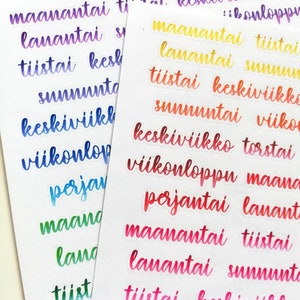 maanantai
maanantai tiis
lauantai sun
tiistai kesk
sunnuntai
keskiviikko
viikonloppu
perjantai
maanan
laua
tiist
viikonloppu
maanantai tiistai
lauantai sunnuntai
tiistai keskiviikko
sunnuntai viikon
keskiviikko torstai
viikonloppu maanan
perjantai lauantai
maanantai tiistai
lauantai sunnunta
tiistai keskiv